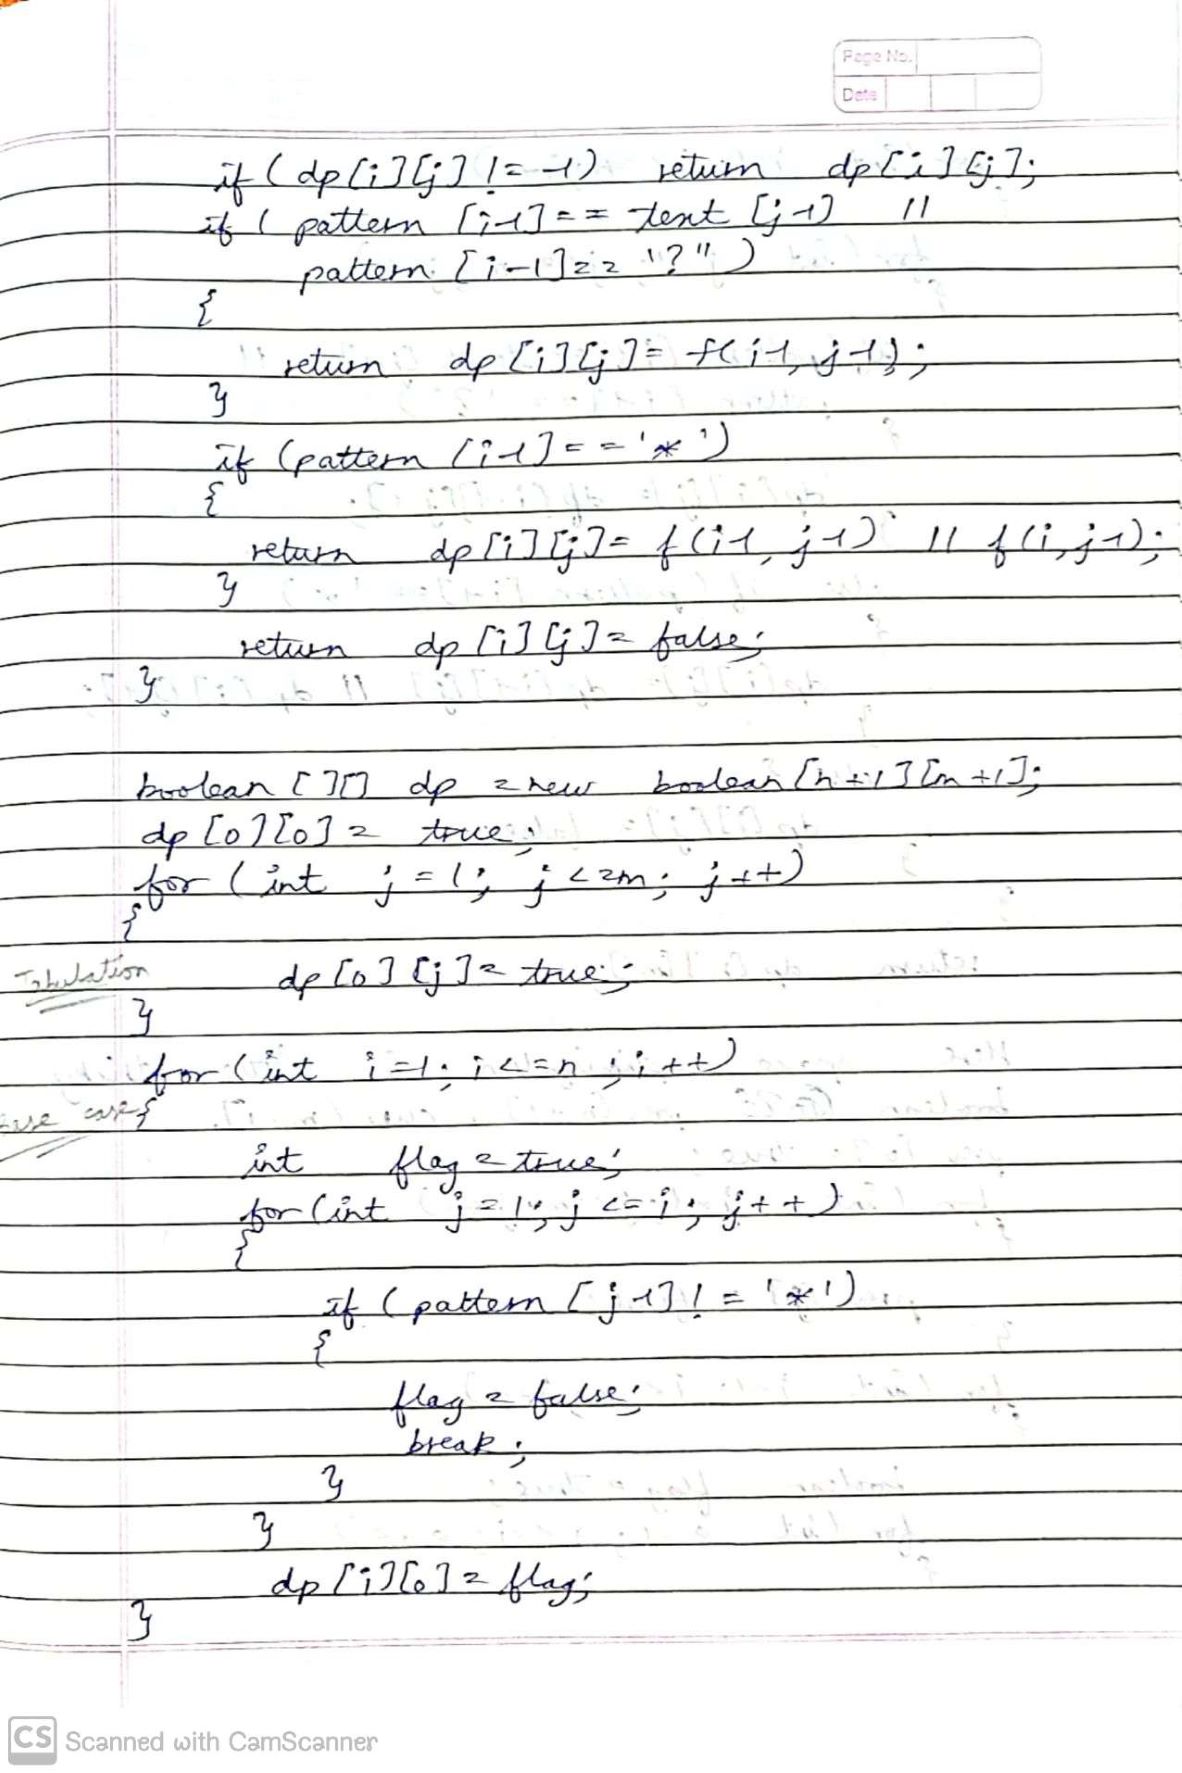 Page No.
Date
if ( dp [i][j] != -1) return dp [i][j];
if ( pattern [i-1] == text [j-1] ||
pattern [i-1] == '?" )
{
return dp [i][j] = f(i-1, j-1);
}
if (pattern [i-1] == '*')
{
return dp [i][j] = f(i-1, j-1) || f(i, j-1);
}
return dp [i][j] = false;
}
boolean [][] dp = new boolean [n+1][m+1];
dp [0][0] = true;
for (int j = 1; j <=m; j++)
{
Tabulation
dp [0][j] = true;
}
for (int i=1; i<=n; i++)
case {
int flag = true;
for (int j = 1; j <= i; j++)
{
if (pattern [j-1] != '*')
{
flag = false;
break;
}
}
dp [i][0] = flag;
}
CS Scanned with CamScanner